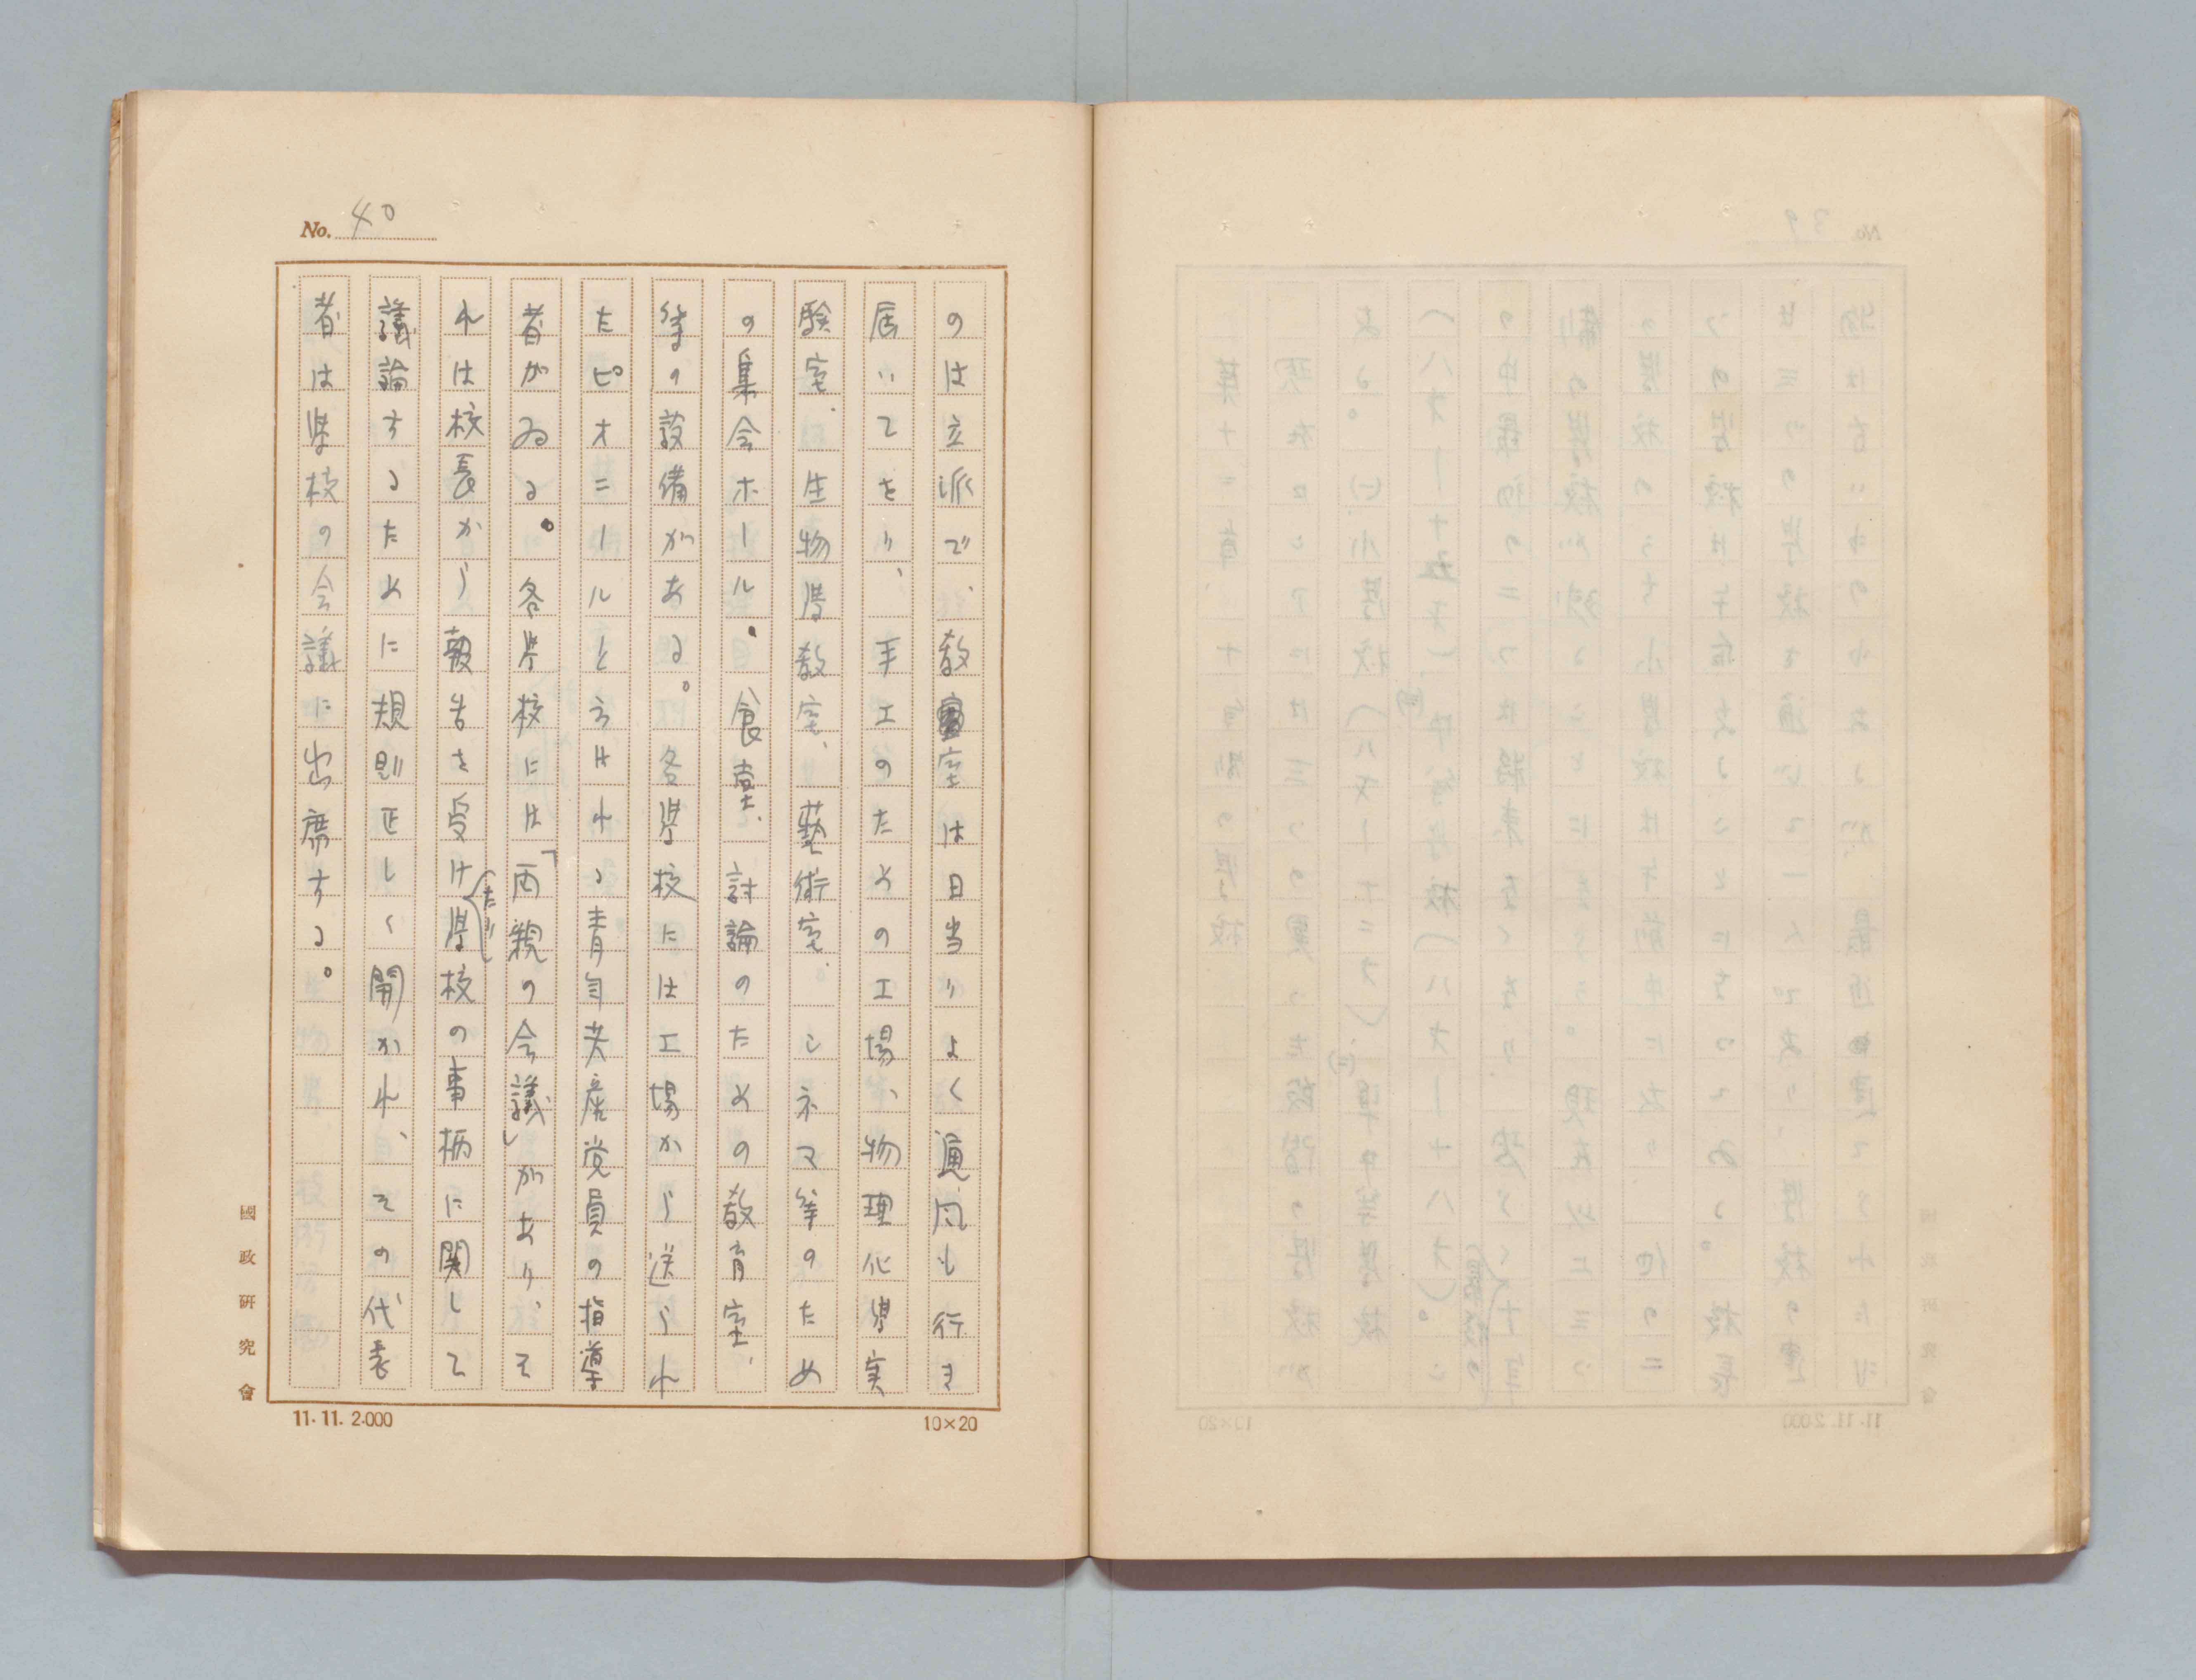 No. 40
のは立派で、教室は日当りよく通風も行き
届いてをり、手工のための工場、物理化学実
験室、生物学教室、藝術室、シネマ等のため
の集会ホール、食堂、討論のための教育室、
等の設備がある。各学校には工場から送られ
たピオニールと云はれる青年共産党員の指導
者がゐる。各学校には「両親の会議」があり、そ
れは校長から報告を受け(たり)学校の事柄に関して
議論するために規則正しく開かれ、その代表
者は学校の会議に出席する。
國政研究會
11.11.2.000
10×20